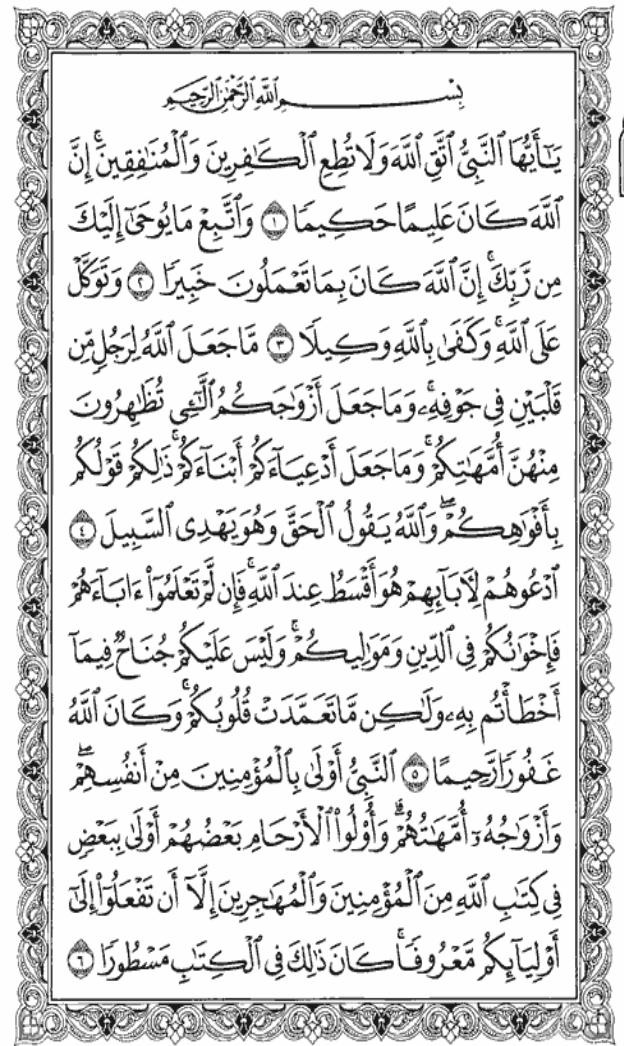 بِسْمِ اللَّهِ الرَّحْمَٰنِ الرَّحِيمِ
يَٰٓأَيُّهَا ٱلنَّبِىُّ ٱتَّقِ ٱللَّهَ وَلَا تُطِعِ ٱلْكَٰفِرِينَ وَٱلْمُنَٰفِقِينَ ۗ إِنَّ
ٱللَّهَ كَانَ عَلِيمًا حَكِيمًا ١ وَٱتَّبِعْ مَا يُوحَىٰٓ إِلَيْكَ
مِن رَّبِّكَ ۚ إِنَّ ٱللَّهَ كَانَ بِمَا تَعْمَلُونَ خَبِيرًا ٢ وَتَوَكَّلْ
عَلَى ٱللَّهِ ۚ وَكَفَىٰ بِٱللَّهِ وَكِيلًا ٣ مَّا جَعَلَ ٱللَّهُ لِرَجُلٍ مِّن
قَلْبَيْنِ فِى جَوْفِهِۦ ۚ وَمَا جَعَلَ أَزْوَٰجَكُمُ ٱلَّٰٓـِٔى تُظَٰهِرُونَ
مِنْهُنَّ أُمَّهَٰتِكُمْ ۚ وَمَا جَعَلَ أَدْعِيَآءَكُمْ أَبْنَآءَكُمْ ۚ ذَٰلِكُمْ قَوْلُكُم
بِأَفْوَٰهِكُمْ ۖ وَٱللَّهُ يَقُولُ ٱلْحَقَّ وَهُوَ يَهْدِى ٱلسَّبِيلَ ٤
ٱدْعُوهُمْ لِءَابَآئِهِمْ هُوَ أَقْسَطُ عِندَ ٱللَّهِ ۚ فَإِن لَّمْ تَعْلَمُوٓا۟ ءَابَآءَهُمْ
فَإِخْوَٰنُكُمْ فِى ٱلدِّينِ وَمَوَٰلِيكُمْ ۚ وَلَيْسَ عَلَيْكُمْ جُنَاحٌ فِيمَآ
أَخْطَأْتُم بِهِۦ وَلَٰكِن مَّا تَعَمَّدَتْ قُلُوبُكُمْ ۚ وَكَانَ ٱللَّهُ
غَفُورًا رَّحِيمًا ٥ ٱلنَّبِىُّ أَوْلَىٰ بِٱلْمُؤْمِنِينَ مِنْ أَنفُسِهِمْ ۖ
وَأَزْوَٰجُهُۥٓ أُمَّهَٰتُهُمْ ۗ وَأُو۟لُوا۟ ٱلْأَرْحَامِ بَعْضُهُمْ أَوْلَىٰ بِبَعْضٍ
فِى كِتَٰبِ ٱللَّهِ مِنَ ٱلْمُؤْمِنِينَ وَٱلْمُهَٰجِرِينَ إِلَّآ أَن تَفْعَلُوٓا۟ إِلَىٰٓ
أَوْلِيَآئِكُم مَّعْرُوفًا ۚ كَانَ ذَٰلِكَ فِى ٱلْكِتَٰبِ مَسْطُورًا ٦